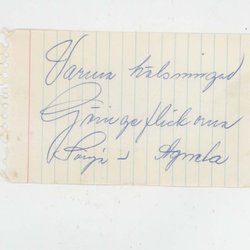 Varma hälsningar
Göingeflickorna
Sonja - Agneta